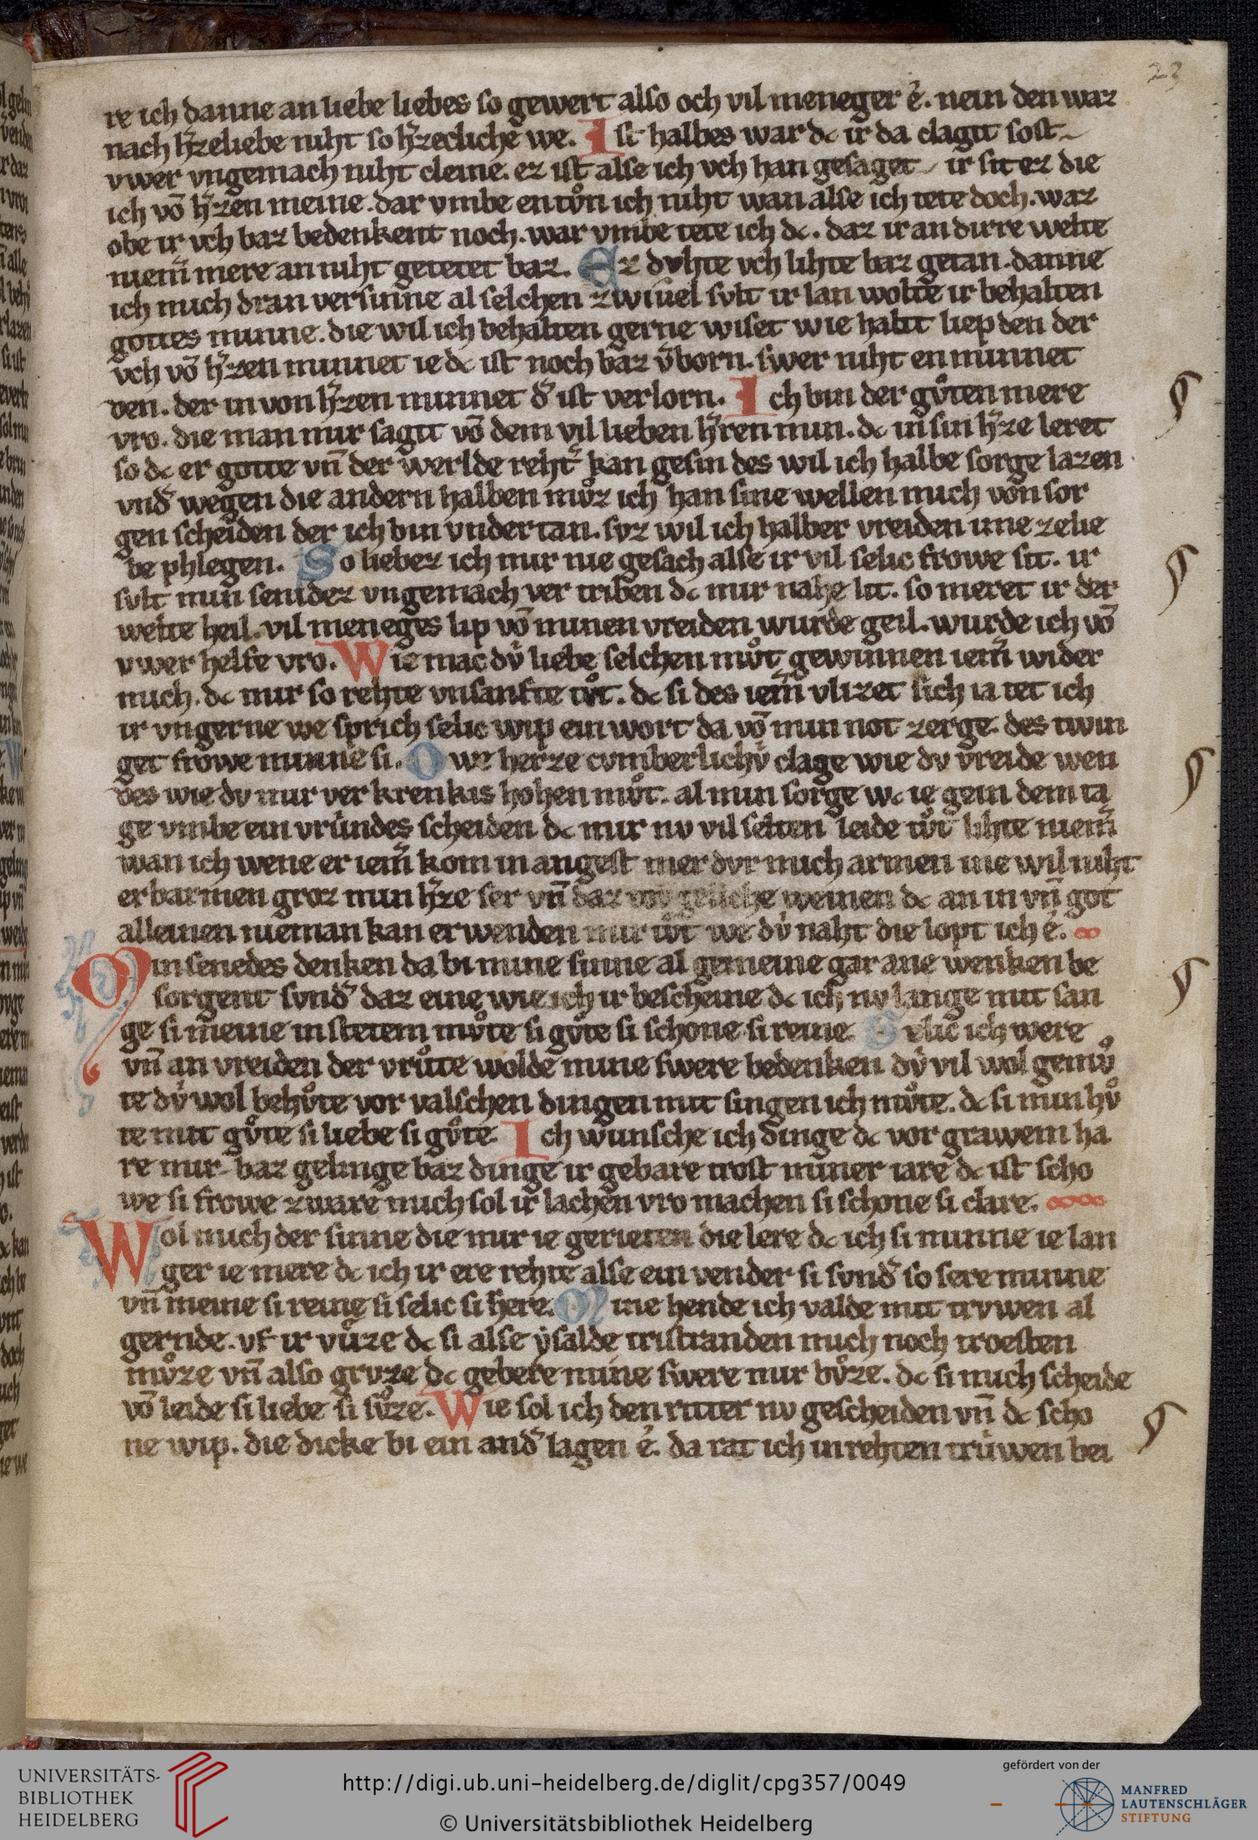 23
re ich danne an liebe liebes so gewert also och vil meneger é. nein den waz
nach h̄zeliebe niht so h̄zecliche we. Ist halbes war dc ir da clagit sost
vwer vngemach niht cleine. ez ist alse ich vch han gesaget ir sit ez die
ich vō h̄zen meine. dar vmbe entůn ich niht wan alse ich tete doch. waz
obe ir vch baz bedenkent noch. war vmbe tete ich dc. daz ir an dirre welte
niem̄ mere an niht getetet baz. Ez dvhte vch lihte baz getan. danne
ich mich dran versinne al selchen zwiuel svlt ir lan wolte ir behalten
gottes minne. die wil ich behalten gerne wiset wie habit liep den der
vch vō h̄zen minnet ie dc ist noch baz v̄born. swer niht en minnet
den. der in von h̄zen minnet d̄ ist verlorn. Ich bin der gůten mere
vro. die man mir sagit vō dem vil lieben h̄ren min. dc in sin h̄ze leret
so dc er gotte vn̄ der werlde reht̄ kan gesin des wil ich halbe sorge lazen
vnd̄ wegen die andern halben můz ich han sine wellen mich von sor
gen scheiden der ich bin vndertan. svz wil ich halber vreiden ime ze lie
be phlegen. So liebez ich mir nie gesach alse ir vil selic frowe sit. ir
svlt min senidez vngemach ver triben dc mir nahe lit. so meret ir der
welte heil. vil meneges lip vō minen vreiden wurde geil. wurde ich vō
vwer helfe vro. Wie mac dv̇ liebe selchen můt gewinnen iem̄ wider
mich. dc mir so rehte vnsanfte tůt. dc si des iem̄ vlizet sich ia tet ich
ir vngerne we sprich selic wip ein wort da vō min not zerge. des twin
get frowe minne si. Owe herze cvmberlichv̇ clage wie dv vreide wen
des wie dv mir ver krenkis hohen můt. al min sorge wc ie gein dem ta
ge vmbe ein vrúndes scheiden dc mir nv vil selten leide tůt lihte niem̄
wan ich wene er iem̄ kom in angest mer dvr mich armen ine wil niht
erbarmen groz min h̄ze ser vn̄ daz weinen dc an in vn̄ got
alleinen nieman kan erwenden mir tůt we dv̇ naht die lopt ich é.
Min senedes denken da bi mine sinne al gemeine gar ane wenken be
sorgent svnd̄ daz eine wie ich ir bescheine dc ich nv lange mit san
ge si meine in stetem můte si gůte si schone si reine. Selic ich were
vn̄ an vreiden der vrůte wolde mine swere bedenken dv̇ vil wol gemů
te dv̇ wol behůte vor valschen dingen mit singen ich můte. dc si min hů
te mit gůte si liebe si gůte. Ich wunsche ich dinge dc vor grawem ha
re mir baz gelinge baz dinge ir gebare trost miner iare dc ist scho
we si frowe zware mich sol ir lachen vro machen si schone si clare.
Wol mich der sinne die mir ie gerieten die lere dc ich si minne ie lan
ger ie mere dc ich ir ere rehte alse ein vender si svnd̄ so sere minne
vn̄ meine si reine si selic si here. Mine hende ich valde mit trvwen al
gernde. vf ir vůze dc si alse ẏsalde tristranden mich noch troesten
můze vn̄ also grvze dc gebere mine swere mir bůze. dc si mich scheide
vō leide si liebe si sůze. Wie sol ich den ritter nv gescheiden vn̄ dc scho
ne wip. die dicke bi ein and̄ lagen é. da rat ich in rehten trúwen bei
UNIVERSITÄTS-
BIBLIOTHEK
HEIDELBERG
http://digi.ub.uni-heidelberg.de/diglit/cpg357/0049
© Universitätsbibliothek Heidelberg
gefördert von der
MANFRED
LAUTENSCHLÄGER
STIFTUNG